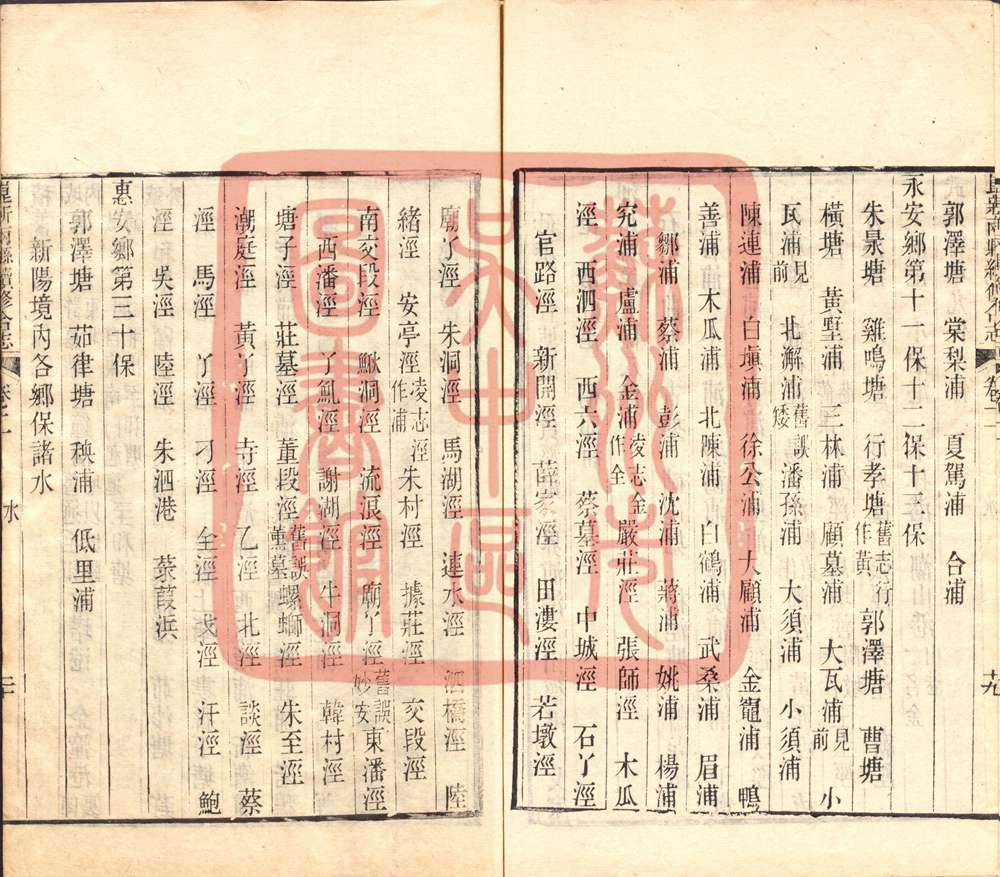 郭澤塘 棠梨浦 夏駕浦 合浦
永安鄉第十一保十二保十三保
朱暴塘 雞鳴塘 行孝塘舊志行作黃 郭澤塘 曹塘
橫塘 黃墅浦 三林浦 顧墓浦 大瓦浦見前 小
瓦浦見前 北澥浦舊誤矮 潘孫浦 大須浦 小須浦
陳連浦 白塡浦 徐公浦 大顧浦 金竉浦 鴨
善浦 木瓜浦 北陳浦 白鶴浦 武桑浦 眉浦
鄒浦 蔡浦 彭浦 沈浦 蔣浦 姚浦 楊浦
兖浦 盧浦 金浦凌志金作全 嚴莊涇 張師涇 木瓜
涇 西泗涇 西六涇 蔡墓涇 中城涇 石丫涇
官路涇 新開涇 薛家涇 田漊涇 若墩涇
廟丫涇 朱洞涇 馬湖涇 連水涇 泗橋涇 陸
緒涇 安亭涇凌志涇作浦 朱村涇 據莊涇 交段涇
南交段涇 鰍洞涇 流浪涇 廟丫涇舊誤妙安 東潘涇
西潘涇 丫魤涇 謝湖涇 牛洞涇 韓村涇
塘子涇 莊墓涇 董段涇舊誤薰墓 螺螄涇 朱至涇
潮庭涇 黃丫涇 寺涇 乙涇 北涇 談涇 蔡
涇 馬涇 丫涇 刁涇 全涇 戈涇 汗涇 鮑
涇 吳涇 陸涇 朱泗港 蒅葭浜
惠安鄉第三十保
郭澤塘 茹律塘 秧浦 低里浦
新陽境內各鄉保諸水
水
蘇州市吳中區圖書館